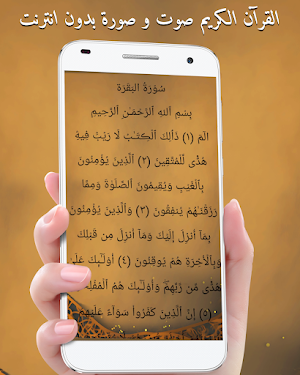 القرآن الكريم صوت و صورة بدون انترنت
سُورَةُ البَقَرَة
بِسْمِ اَللهِ اَلرَّحْمَٰنِ اِلرَّحِيمِ
الم (١) ذَٰلِكَ اَلْكِتَٰبُ لَا رَيْبَ فِيهِ
هُدًى لِّلْمُتَّقِينَ (٢) اَلَّذِينَ يُؤْمِنُونَ
بِالْغَيْبِ وَيُقِيمُونَ اَلصَّلَوٰةَ وَمِمَّا
رَزَقْنَٰهُمْ يُنفِقُونَ (٣) وَاَلَّذِينَ يُؤْمِنُونَ
بِمَآ أُنزِلَ إِلَيْكَ وَمَآ أُنزِلَ مِن قَبْلِكَ
وَبِالْأٓخِرَةِ هُمْ يُوقِنُونَ (٤) أُوْلَٰٓئِكَ عَلَىٰ
هُدًى مِّن رَّبِّهِمْ وَأُوْلَٰٓئِكَ هُمُ
(٥) إِنَّ اَلَّذِينَ كَفَرُواْ سَوَآءٌ عَلَيْهِمْ